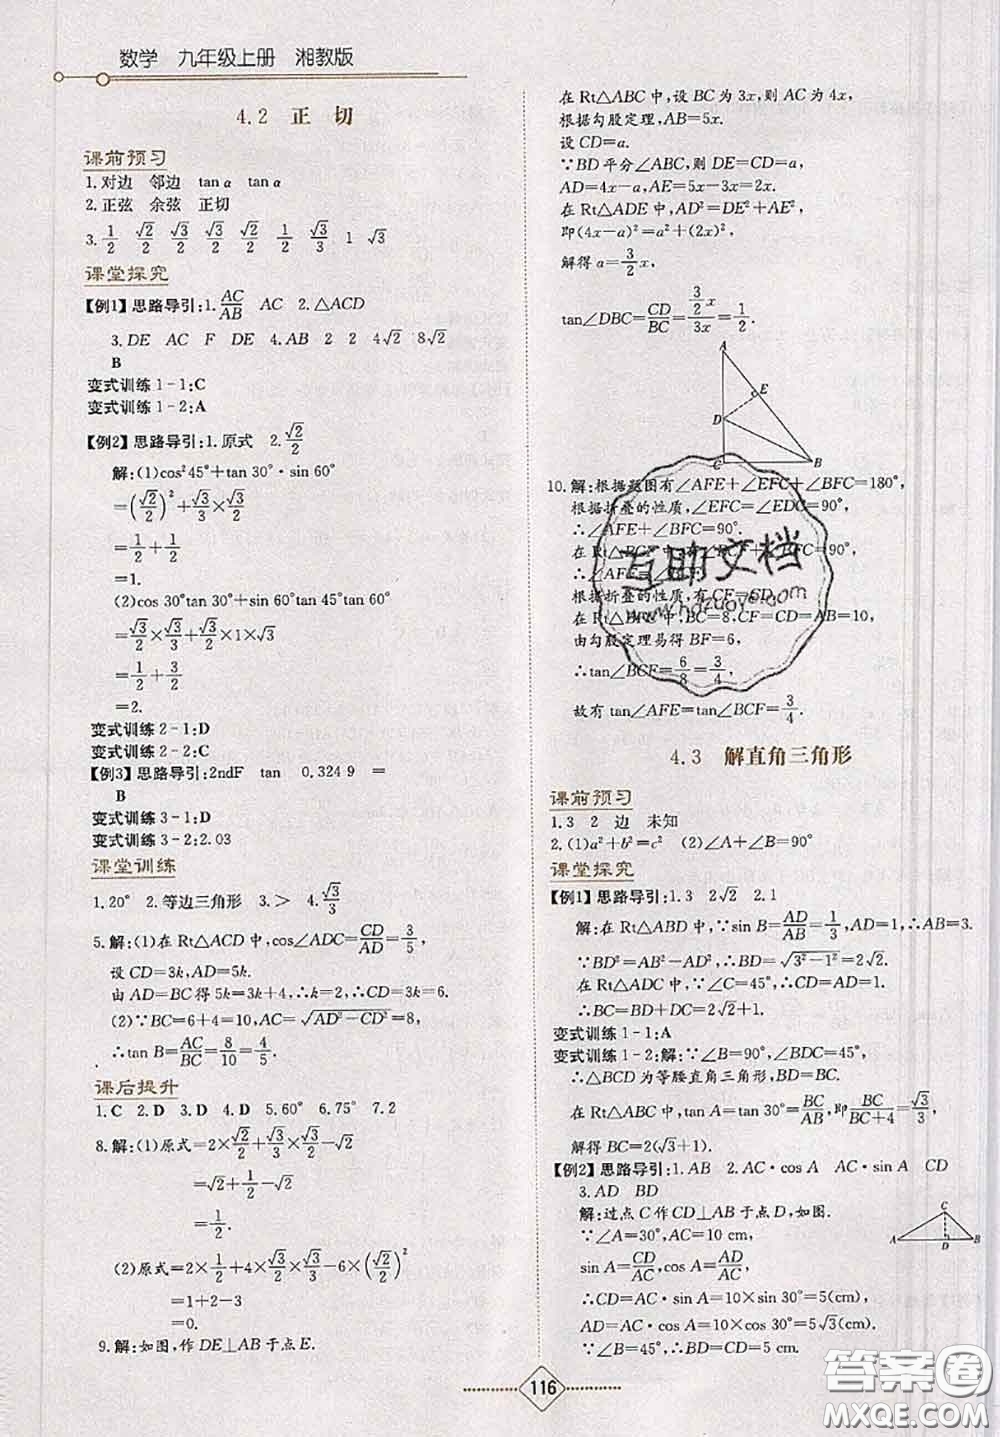 数学 九年级上册 湘教版
4.2 正 切
课前预习
1.对边 邻边 tan α tan α
2.正弦 余弦 正切
3. 1/2 √2/2 √3/2 √3/2 √2/2 1/2 √3/3 1 √3
课堂探究
【例1】思路导引:1. AC/AB AC 2.△ACD
3.DE AC F DE 4.AB 2 2 4√2 8√2
B
变式训练 1-1:C
变式训练 1-2:A
【例2】思路导引:1.原式 2. √2/2
解:(1)cos²45°+tan 30°·sin 60°
=(√2/2)²+√3/3×√3/2
=1/2+1/2
=1.
(2)cos 30°tan 30°+sin 60°tan 45°tan 60°
=√3/2×√3/3+√3/2×1×√3
=1/2+3/2
=2.
变式训练 2-1:D
变式训练 2-2:C
【例3】思路导引:2ndF tan 0.324 9 =
B
变式训练 3-1:D
变式训练 3-2:2.03
课堂训练
1.20° 2.等边三角形 3.> 4. √3/3
5.解:(1)在 Rt△ACD 中,cos∠ADC=CD/AD=3/5,
设 CD=3k,AD=5k.
由 AD=BC 得 5k=3k+4,∴k=2,∴CD=3k=6.
(2)∵BC=6+4=10,AC=√(AD²-CD²)=8,
∴tan B=AC/BC=8/10=4/5.
课后提升
1.C 2.D 3.D 4.D 5.60° 6.75° 7.2
8.解:(1)原式=2×√2/2+√3/3×√3/2-√2
=√2+1/2-√2
=1/2.
(2)原式=2×1/2+4×√3/2×√3/3-6×(√2/2)²
=1+2-3
=0.
9.解:如图,作 DE⊥AB 于点 E.
在 Rt△ABC 中,设 BC 为 3x,则 AC 为 4x,
根据勾股定理,AB=5x.
设 CD=a.
∵BD 平分∠ABC,则 DE=CD=a,
AD=4x-a,AE=5x-3x=2x.
在 Rt△ADE 中,AD²=DE²+AE²,
即(4x-a)²=a²+(2x)²,
解得 a=3/2 x,
tan∠DBC=CD/BC=(3/2 x)/3x=1/2.
A
E
D
C
B
10.解:根据题图有∠AFE+∠EFC+∠BFC=180°,
根据折叠的性质,∠EFC=∠EDC=90°,
∴∠AFE+∠BFC=90°.
在 Rt△BCF 中,有∠BCF+∠BFC=90°,
∴∠AFE=∠BCF.
根据折叠的性质,有 CF=CD.
在 Rt△BCF 中,BC=8,CF=CD=AB=10,
由勾股定理易得 BF=6,
∴tan∠BCF=6/8=3/4,
故有 tan∠AFE=tan∠BCF=3/4.
互助文档
www.hdzuoye.com
4.3 解直角三角形
课前预习
1.3 2 边 未知
2.(1)a²+b²=c² (2)∠A+∠B=90°
课堂探究
【例1】思路导引:1.3 2√2 2.1
解:在 Rt△ABD 中,∵sin B=AD/AB=1/3,AD=1,∴AB=3.
∵BD²=AB²-AD²,∴BD=√(3²-1²)=2√2.
在 Rt△ADC 中,∵∠C=45°,∴CD=AD=1.
∴BC=BD+DC=2√2+1.
变式训练 1-1:A
变式训练 1-2:解:∵∠B=90°,∠BDC=45°,
∴△BCD 为等腰直角三角形,BD=BC.
在 Rt△ABC 中,tan A=tan 30°=BC/AB,即 BC/(BC+4)=√3/3,
解得 BC=2(√3+1).
【例2】思路导引:1.AB 2.AC·cos A AC·sin A CD
3.AD BD
解:过点 C 作 CD⊥AB 于点 D,如图.
∵∠A=30°,AC=10 cm,
sin A=CD/AC,cos A=AD/AC,
∴CD=AC·sin A=10×sin 30°=5(cm),
AD=AC·cos A=10×cos 30°=5√3(cm).
C
A D B
116
答案圈
MXQE.COM